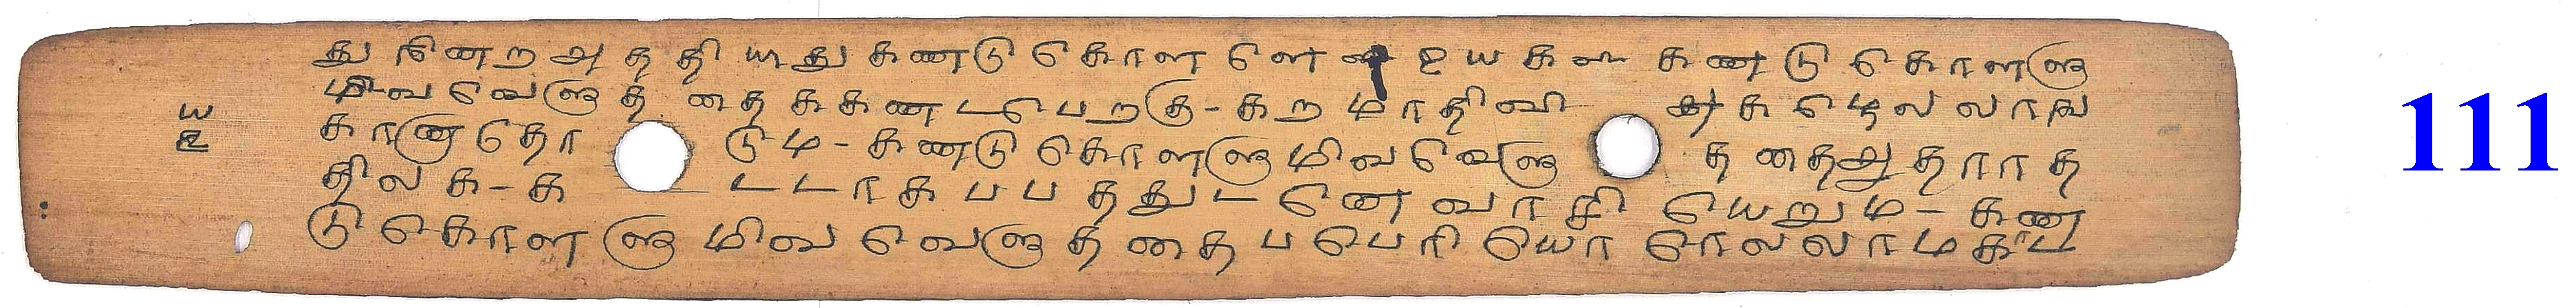 து நினற அத தி யாது கண்டு கொள ளெ உ ய க ள கண டு கொளளு
மிவ வெளுத தைக கண டபெறகு - கறமாதிவி அக மெலலாங
காணுதோ டும - கணடு கொளளு மிவவெளு த தைஅதராரத
திலக - க டடாகபபதது டனெ வாசி யெறும - கண
டு கொளளு மிவவெளுததைப பெரியோ ரெலலாமகூட
ய
உ
111